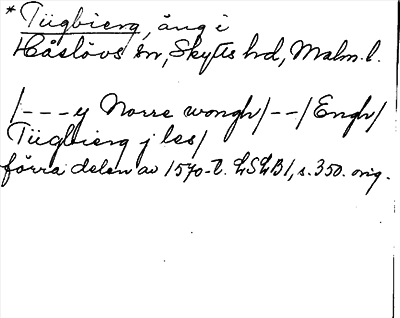 * Tügbierg, äng i
Håslövs sn, Skytts hd, Malm. l.
/---y Norre wongh/--/Engh/
Tügbierg j les/
förra delen av 1570-t. LSLB1, s. 350. orig.